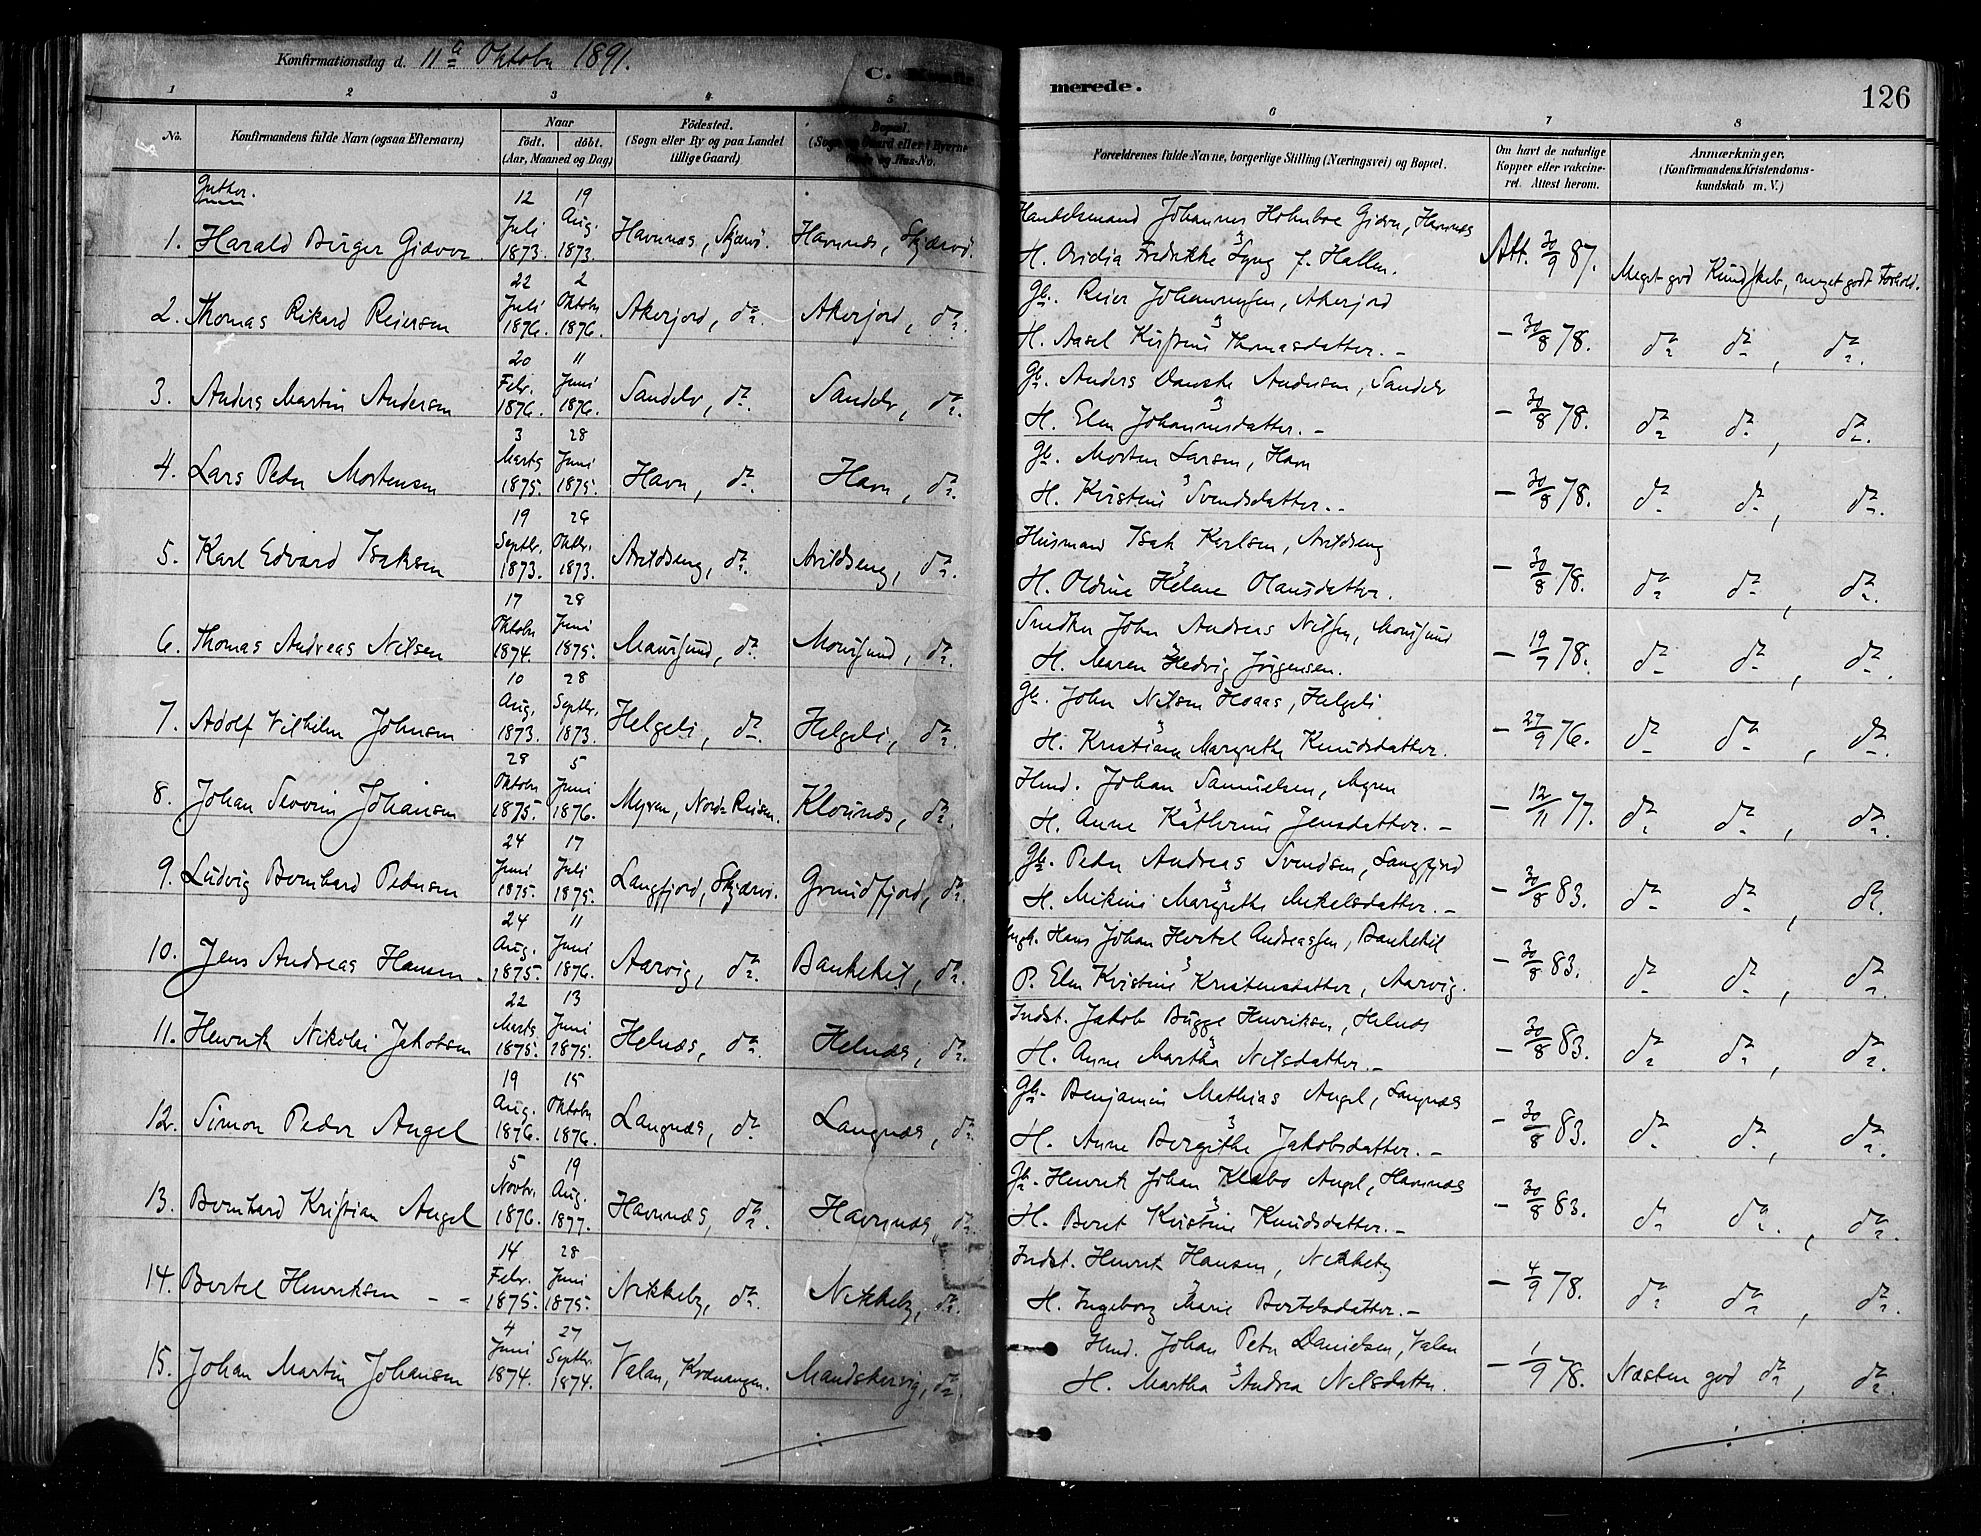 Konfirmationsdag d. 11te Oktober 1891.
C. Konfir
merede.
126
1 2 3 4 5 6 7 8
No.
Konfirmandens fulde Navn (ogsaa Efternavn)
Naar
født. døbt.
(Aar, Maaned og Dag)
Fødested.
(Sogn eller By og paa Landet
tillige Gaard)
Bopæl.
(Sogn og Gaard eller i Byerne
Gade og Hus-No.
Forældrenes fulde Navne, borgerlige Stilling (Næringsvei) og Bopæl.
Om havt de naturlige
Kopper eller vakcine-
ret. Attest herom.
Anmærkninger.
(Konfirmandens Kristendoms-
kundskab m. V.)
Gutter.
1. Harald Birger Giæver 12 Juli 1873. 19 Aug. 1873. Havnnæs, Skjærvø. Havnnæs, Skjærvø.
Handelsmand Johannes Holmboe Giæver, Havnnæs
H. Ovidia Fredrikke Lyng f. Hallen.
Att. 30/9 87. Meget god Kundskab, meget godt Forhold.
2. Thomas Rikard Reiersen 22 Juli 1876. 2 Oktober 1876. Akerjord, do. Akerjord, do.
Gb. Reier Johannessen, Akerjord
H. Aasel Kirstine Thomasdatter. –
– 30/8 78. do do, do.
3. Anders Martin Andersen 20 Febr. 1876. 11 Juni 1876. Sandelv, do. Sandelv, do.
Gb. Anders Danske Andersen, Sandelv
H. Elen Johannesdatter. –
– 30/8 78. do do, do.
4. Lars Peder Mortensen 3 Marts 1875. 28 Juni 1875. Havn, do. Havn, do.
Gb. Morten Larsen, Havn
H. Kirstine Svendsdatter. –
– 30/8 78. do do, do.
5. Karl Edvard Isaksen 19 Septbr. 1873. 26 Oktbr. 1873. Avildseng, do. Avildseng, do.
Husmand Isak Karlsen, Avildseng
H. Oldine Helene Olausdatter.
– 30/8 78. do do, do.
6. Thomas Andreas Nilsen 17 Oktober 1874. 28 Juni 1875. Maursund, do. Maursund, do.
Snedker John Andreas Nilssen, Maursund
H. Maren Hedvig Jørgensen.
– 19/9 78. do do, do
7. Adolf Vilhelm Johnsen 10 Aug. 1873. 28 Septbr. 1873. Helgeli, do Helgeli, do.
Gb. John Nilsen Hoaas, Helgeli
H. Kristiane Margrethe Knudsdatter.
– 27/9 76. do do, do.
8. Johan Severin Johansen 28 Oktober 1875. 5 Juni 1876. Myren, Nord-Reisen. Klovnæs, do.
Hmd. Johan Samuelsen, Myren
H. Anne Katherine Jensdatter. –
– 12/11 77. do do, do.
9. Ludvig Bernhard Pedersen 24 Juni 1875. 17 Juli 1875. Langfjord, Skjærvø. Grundfjord, do.
Gb. Peder Andreas Svendsen, Langfjord
H. Mikine Margrethe Mikelsdatter. –
– 30/8 83. do do, do.
10. Jens Andreas Hansen. 24 Aug. 1875. 11 Juni 1876. Aarvig, do. Bankekil, do.
Ungk. Hans Johan Hertel Andreassen, Bankekil
P. Elen Kristine Kristensdatter, Aarvig.
– 30/8 83. do do, do.
11. Henrik Nikolai Jakobsen 22 Marts 1875. 13 Juni 1875. Helnæs, do. Helnæs, do.
Indst. Jakob Bugge Henriksen, Helnæs
H. Anne Martha Nilsdatter. –
– 30/8 83. do do, do.
12. Simon Peder Angel 19 Aug. 1876. 15 Oktober 1876. Langnæs, do. Langnæs, do.
Gb. Benjamin Mathias Angel, Langnæs
H. Anne Bergithe Jakobsdatter. –
– 30/8 83. do do, do.
13. Bernhard Kristian Angel 5 Novbr. 1876. 19 Aug. 1877. Havnnæs, do. Havnnæs, do.
Gb. Henrik Johan Klæbo Angel, Havnnæs
H. Beret Kirstine Knudsdatter. –
– 30/8 83. do do, do.
14. Bertel Henriksen – – 14 Febr. 1875. 28 Juni 1875. Nikkeby, do. Nikkeby, do.
Indst. Henrik Hansen, Nikkeby
H. Ingeborg Marie Bertelsdatter. –
– 4/9 78. do do, do.
15. Johan Martin Johansen 4 Juni 1874. 27 Septbr. 1874. Valan, Kvænangen. Mandskervig, do.
Hmd. Johan Peter Danielsen, Valan
H. Martha Andrea Nilsdatter.
– 1/9 78. Næsten god do, do.